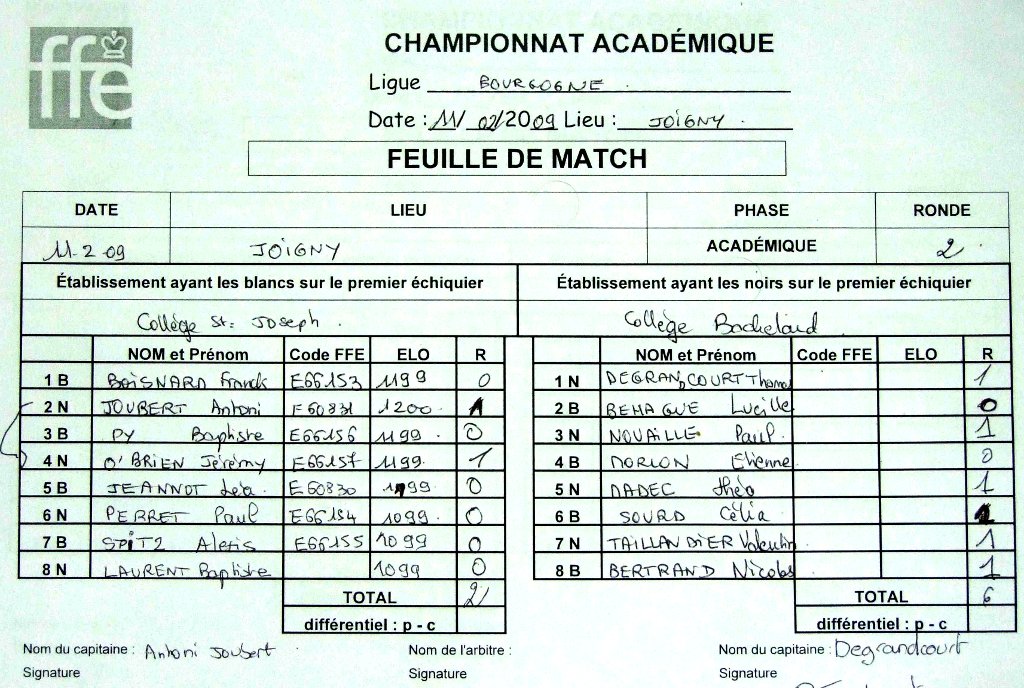 ffe
CHAMPIONNAT ACADÉMIQUE
Ligue BOURGOGNE
Date : 11/ 02/2009 Lieu : JOIGNY
FEUILLE DE MATCH
DATE LIEU PHASE RONDE
11-2-09 JOIGNY ACADÉMIQUE 2
Établissement ayant les blancs sur le premier échiquier Établissement ayant les noirs sur le premier échiquier
Collège St. Joseph. Collège Bachelard
NOM et Prénom Code FFE ELO R NOM et Prénom Code FFE ELO R
1 B BOISNARD Franck E66153 1199 0 1 N DEGRANDCOURT Thomas 1
2 N JOUBERT Antoni E60831 1200 1 2 B BEHAGUE Lucille 0
3 B PY Baptiste E66156 1199 0 3 N NOUAILLE Paul 1
4 N O'BRIEN Jérémy E66157 1199 1 4 B MORLON Etienne 0
5 B JEANNOT Léa E60830 1099 0 5 N DADEC théo 1
6 N PERRET Paul E66154 1099 0 6 B SOURD Célia 1
7 B SPITZ Alexis E66155 1099 0 7 N TAILLANDIER Valentin 1
8 N LAURENT Baptiste 1099 0 8 B BERTRAND Nicolas 1
TOTAL 2 TOTAL 6
différentiel : p - c différentiel : p - c
Nom du capitaine : Antoni Joubert Nom de l'arbitre : Nom du capitaine : Degrandcourt
Signature Signature Signature